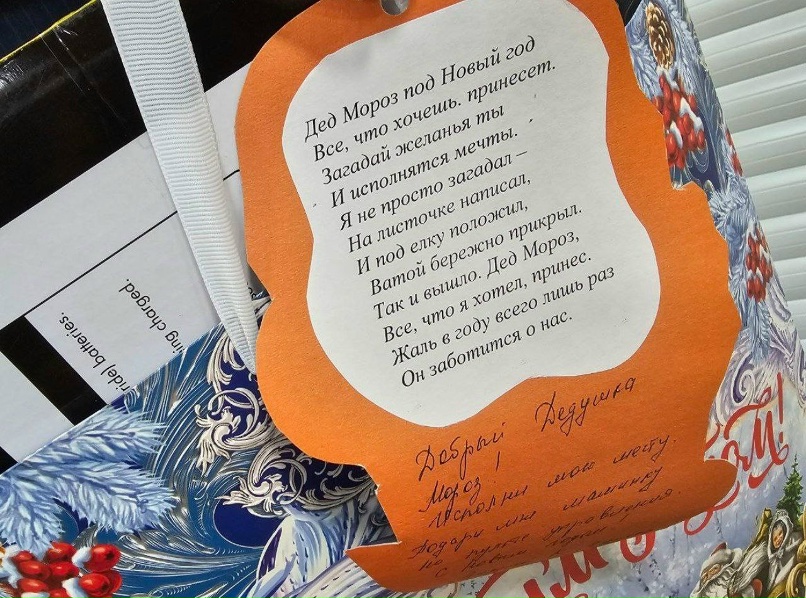 Дед Мороз под Новый год
Все, что хочешь. принесет.
Загадай желанья ты
И исполнятся мечты.
Я не просто загадал –
На листочке написал,
И под елку положил,
Ватой бережно прикрыл.
Так и вышло. Дед Мороз,
Все, что я хотел, принес.
Жаль в году всего лишь раз
Он заботится о нас.
Добрый Дедушка
Мороз!
Исполни мою мечту.
Подари мне машинку
на пульте управления.
С Новым годом
ride) batteries.
ing charged.